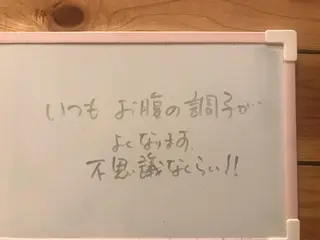 いつも お腹の調子が
よくなります
不思議なくらい!!